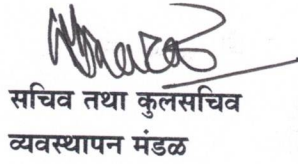 सचिव तथा कुलसचिव
व्यवस्थापन मंडळ